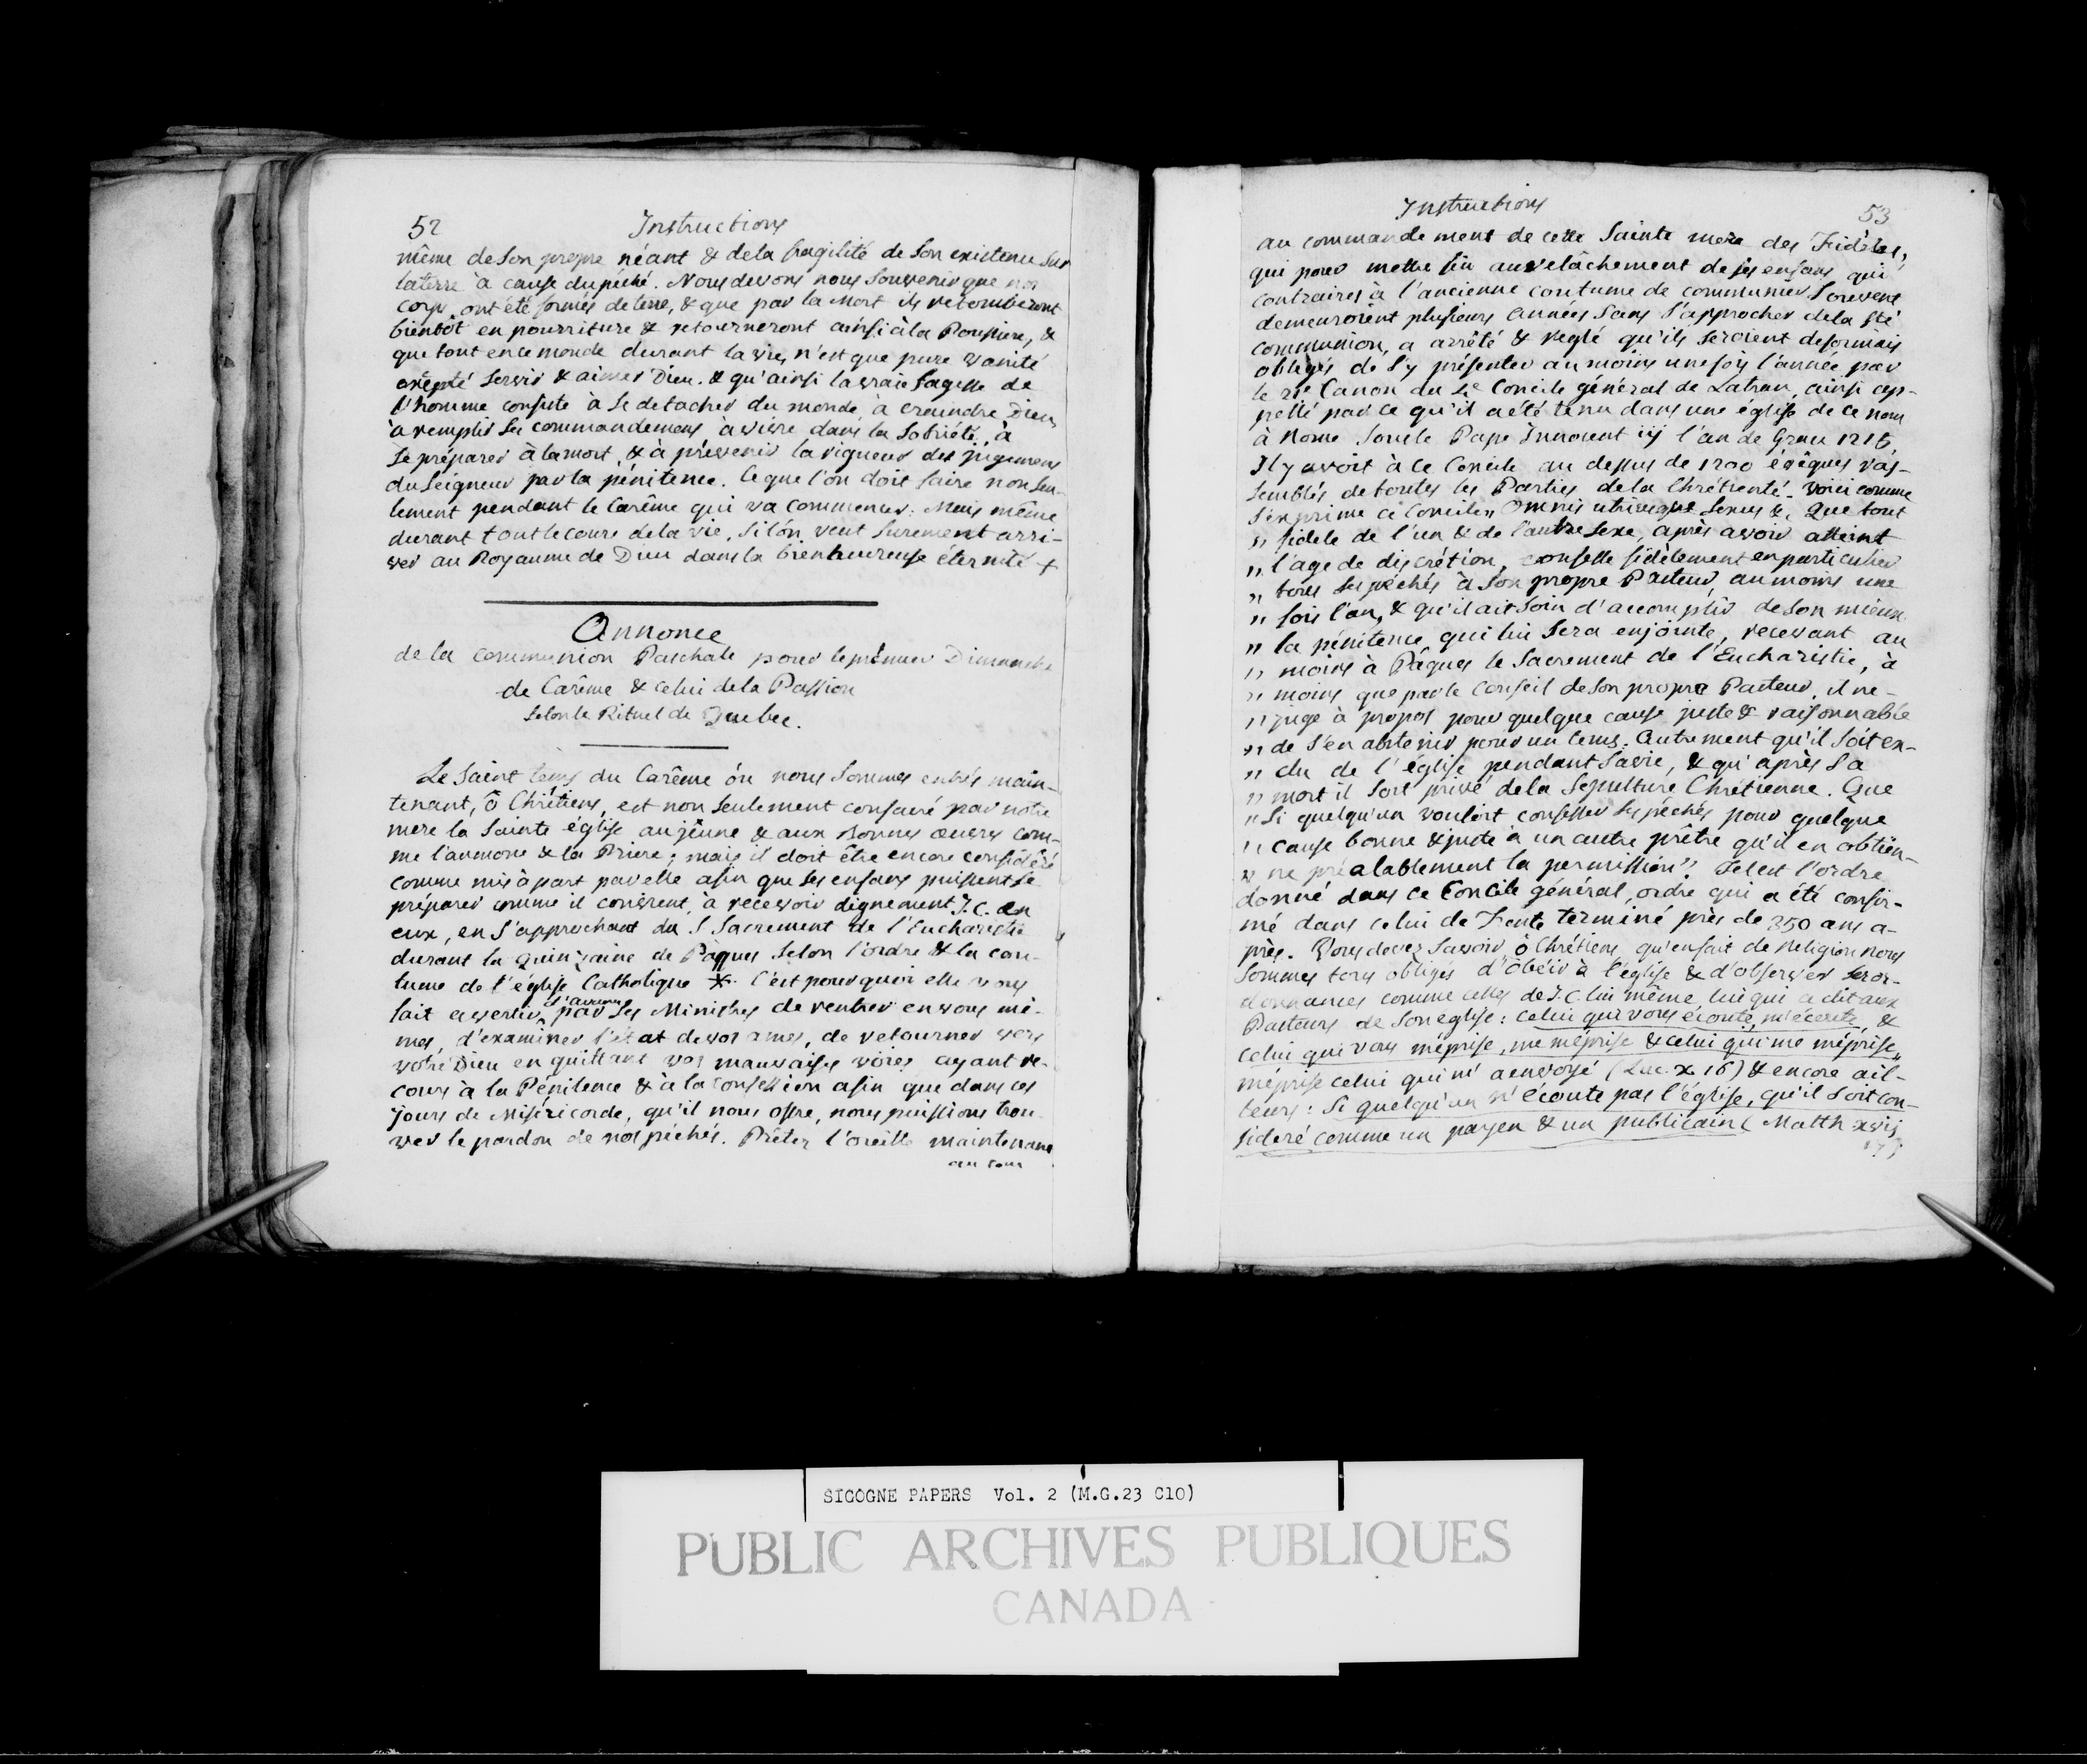 52 Instructions
même de son propre néant & de la fragilité de son existence sur
la terre à cause du péché. Nous devons nous souvenir que nos
corps ont été formés de terre, & que par la Mort ils retomberont
bientôt en pourriture & retourneront ainsi à la Poussiere, &
que tout en ce monde durant la vie, n'est que pure vanité
excepté servir & aimer Dieu. & qu'ainsi la vraie sagesse de
l'homme consiste à se detacher du monde, à craindre Dieu,
à remplir ses commandemens à vivre dans la sobriété, à
se préparer à la mort, & à prévenir la rigueur des jugemens
du Seigneur par la pénitence. Ce que l'on doit faire non seu-
lement pendant le Carême qui va commencer: Mais même
durant tout le cours de la vie, si l'on veut surement arri-
ver au Royaume de Dieu dans la bienheureuse éternité +
Annonce
de la communion Paschale pour le prémier Dimanche
de Carême & celui de la Passion
selon le Rituel de Quebec.
Le saint tems du Carême où nous sommes entrés main-
tenant, ô Chrétiens, est non seulement consacré par notre
mere la sainte église au jeûne & aux Bonnes œuvres com-
me l'aumone & la Priere; mais il doit être encore considéré
comme mis à part par elle afin que ses enfans puissent se
préparer comme il convient, à recevoir dignement J. C. en
eux, en s'approchant du S Sacrement de l'Eucharistie
durant la Quinzaine de Pâques selon l'ordre & la cou-
tume de l'église Catholique * C'est pourquoi elle vous
fait avertir par ses Ministres de rentrer en vous mê-
mes, d'examiner l'état de vos ames, de retourner vers
votre Dieu en quittant vos mauvaises voies ayant re-
cours à la Pénitence & à la confession afin que dans ces
jours de Miséricorde, qu'il nous offre, nous puissions trou-
ver le pardon de nos péchés. Prêtez l'oreille maintenant
au com
Instructions 53
au commandement de cette Sainte mere des Fidèles,
qui pour mettre fin au relâchement de ses enfans qui
contraires à l'ancienne coutume de communier souvent
demeuroient plusieurs années sans s'approcher de la ste
communion, a arrêté & reglé qu'ils seroient desormais
obligés de s'y présenter au moins une fois l'année par
le 21e Canon du Concile général de Latran, ainsi ap-
pellé parce qu'il a été tenu dans une église de ce nom
à Rome sous le Pape Innocent iij l'an de Grace 1215.
Il y avoit à ce Concile au dessus de 1200 évêques ras-
semblés de toutes les Parties de la Chrétienté. Voici comme
s'exprime ce Concile " Omnis utriusque sexus &c Que tout
" fidele de l'un & de l'autre sexe, après avoir atteint
" l'age de discrétion, confesse fidèlement en particulier
" tous ses péchés à son propre Pasteur, au moins une
" fois l'an, & qu'il ait soin d'accomplir de son mieux
" la pénitence qui lui sera enjointe, recevant au
" moins à Pâques le Sacrement de l'Eucharistie, à
" moins que par le conseil de son propre Pasteur, il ne
" juge à propos pour quelque cause juste & raisonnable
" de s'en abstenir pour un tems. Autrement qu'il soit ex-
" clu de l'église pendant sa vie, & qu'après sa
" mort il soit privé de la Sepulture Chrétienne. Que
" si quelqu'un vouloit confesser ses péchés pour quelque
" cause bonne & juste à un autre prêtre qu'il en obtien-
" ne préalablement la permission". Tel est l'ordre
donné dans ce Concile général, ordre qui a été confir-
mé dans celui de Trente terminé près de 350 ans a-
près. Vous devez savoir ô Chrétiens, qu'en fait de Religion nous
sommes tous obligés d'obéir à l'église & d'observer ses or-
donnances comme celles de J. C. lui même, lui qui a dit aux
Pasteurs de son église: celui qui vous écoute, m'écoute, &
celui qui vous méprise, me méprise & celui qui me méprise,
méprise celui qui m'a envoyé (Luc. x 16) & encore ail-
leurs: Si quelqu'un n'écoute pas l'église, qu'il soit con-
sideré comme un payen & un publicain (Matth xviij
SICOGNE PAPERS Vol. 2 (M.G.23 C10)
PUBLIC ARCHIVES PUBLIQUES
CANADA